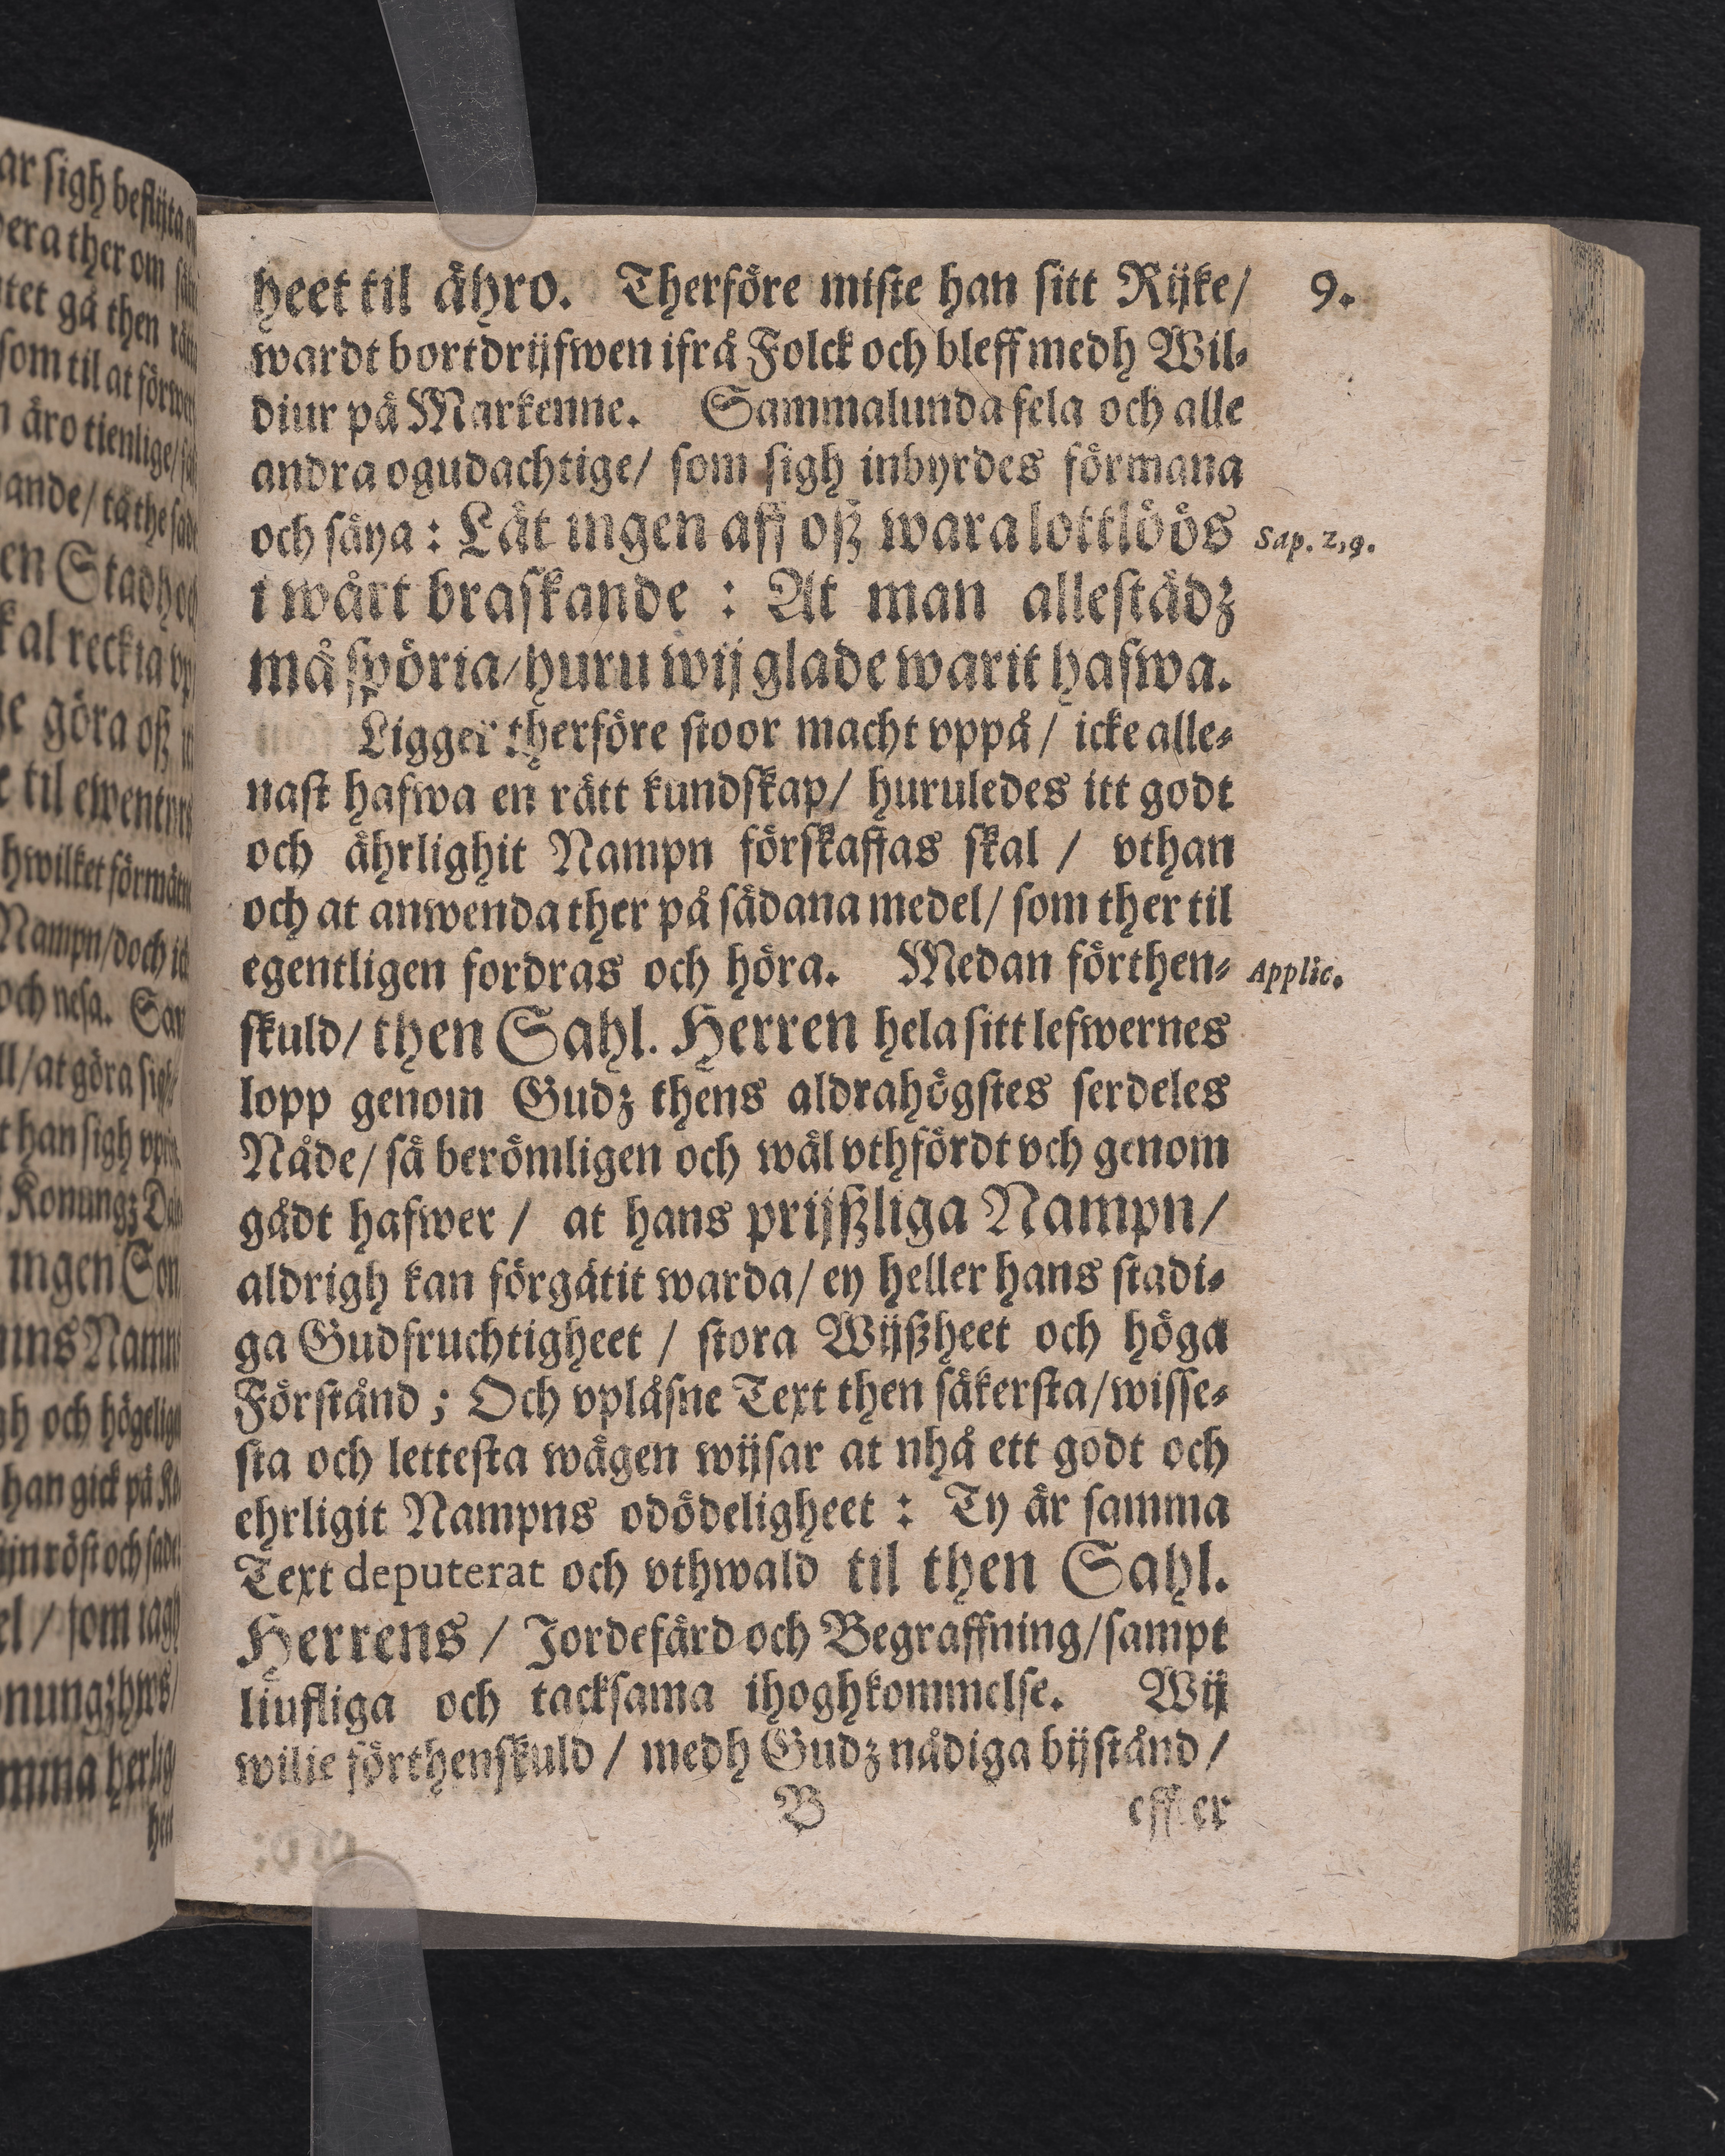 heet til ähro. Therföre miste han sitt Rijke/ 9.
wardt bortdrijfwen ifrå Folck och bleff medh Wil-
diur på Markenne. Sammalunda fela och alle
andra ogudachtige/ som sigh inbyrdes förmana
och säya: Låt ingen aff oß wara lottlöös Sap. 2, 9.
i wårt braskande: At man allestädz
må spöria/ huru wij glade warit hafwa.
Ligger therföre stoor macht vppå/ icke alle-
nast hafwa en rätt kundskap/ huruledes itt godt
och ährlighit Nampn förskaffas skal/ vthan
och at anwenda ther på sådana medel/ som ther til
egentligen fordras och höra. Medan förthen- Applic.
skuld/ then Sahl. Herren hela sitt lefwernes
lopp genom Gudz thens aldrahögstes serdeles
Nåde/ så berömligen och wäl vthfördt och genom
gådt hafwer/ at hans prijßliga Nampn/
aldrigh kan förgätit warda/ ey heller hans stadi-
ga Gudfruchtigheet/ stora Wijßheet och höga
Förstånd; Och vplåsne Text then säkersta/ wisse-
sta och lettesta wägen wijsar at nhå ett godt och
ehrligit Nampns odödeligheet: Ty är samma
Text deputerat och vthwald til then Sahl.
Herrens/ Jordefärd och Begraffning/ sampt
liufliga och tacksama ihoghkommelse. Wij
wilje förthenskuld/ medh Gudz nådiga bijstånd/
B effter